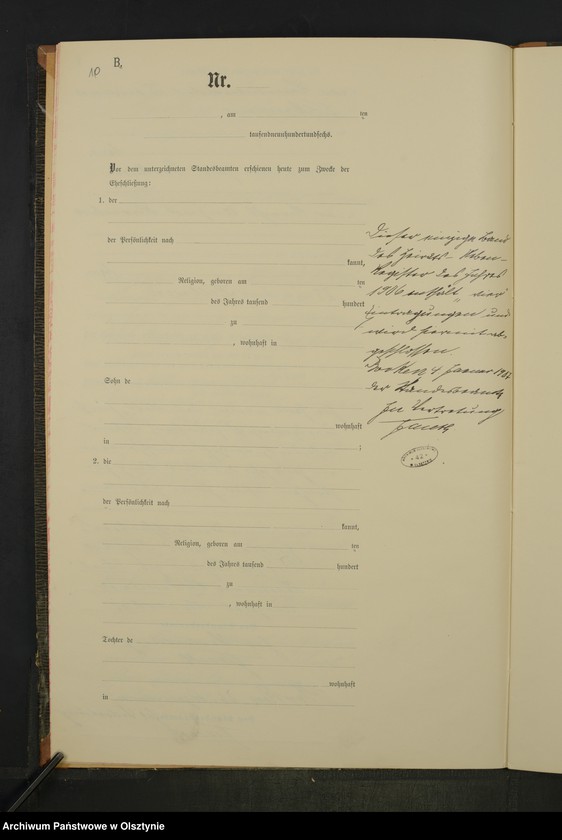 10 B,
Nr.
, am ten
tausendneunhundertundsechs.
Vor dem unterzeichneten Standesbeamten erschienen heute zum Zwecke der
Eheschließung:
1. der
der Persönlichkeit nach
kannt,
Religion, geboren am ten
des Jahrs tausend hundert
zu
, wohnhaft in
Sohn de
wohnhaft
in ;
2. die
der Persönlichkeit nach
kannt,
Religion, geboren am ten
des Jahrs tausend hundert
zu
, wohnhaft in
Tochter de
wohnhaft
in
Dieser einzige Band
des Heirats- Neben-
Registers des Jahres
1906 enthält vier
Eintragungen und
wird hiermit ab-
geschlossen.
4 Januar 1907
der Standesbeamte
In Vertretung
Archiwum Państwowe w Olsztynie